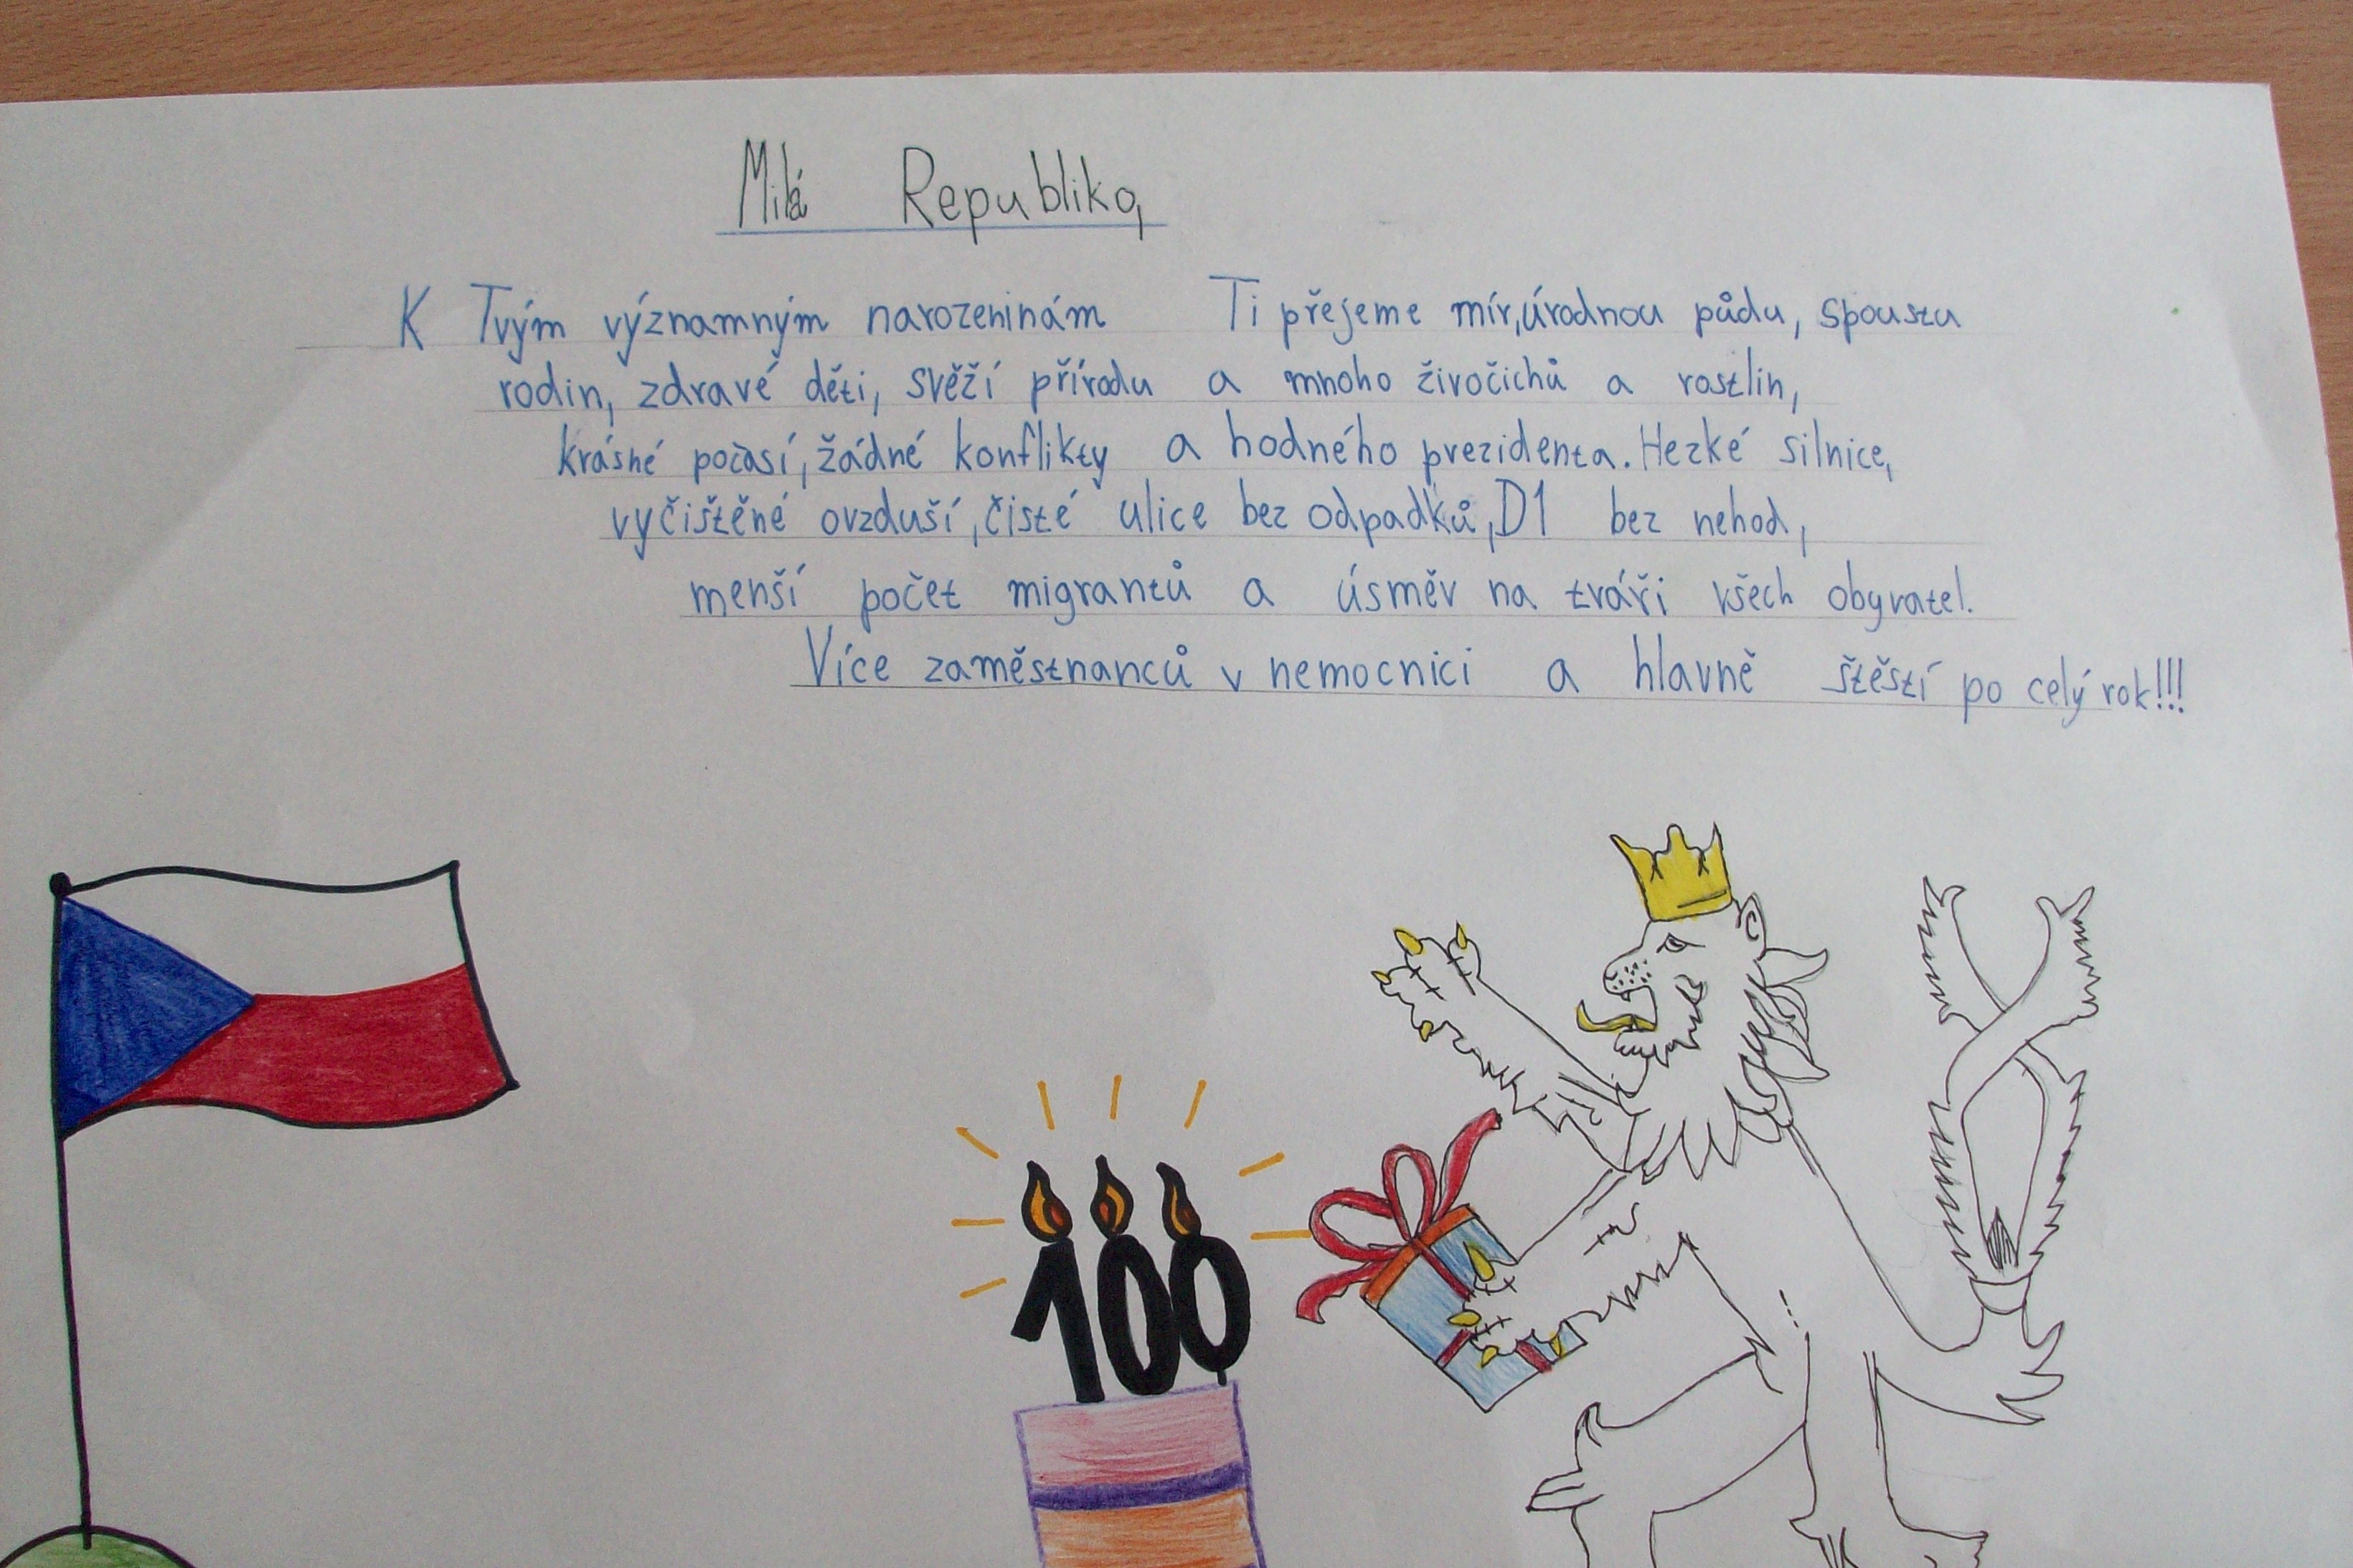 Milá Republiko,
K Tvým významným narozeninám Ti přejeme mír, úrodnou půdu, spoustu
rodin, zdravé děti, svěží přírodu a mnoho živočichů a rostlin,
krásné počasí, žádné konflikty a hodného prezidenta. Hezké silnice,
vyčištěné ovzduší, čisté ulice bez odpadků, D1 bez nehod,
menší počet migrantů a úsměv na tváři všech obyvatel.
Více zaměstnanců v nemocnici a hlavně štěstí po celý rok!!!
100